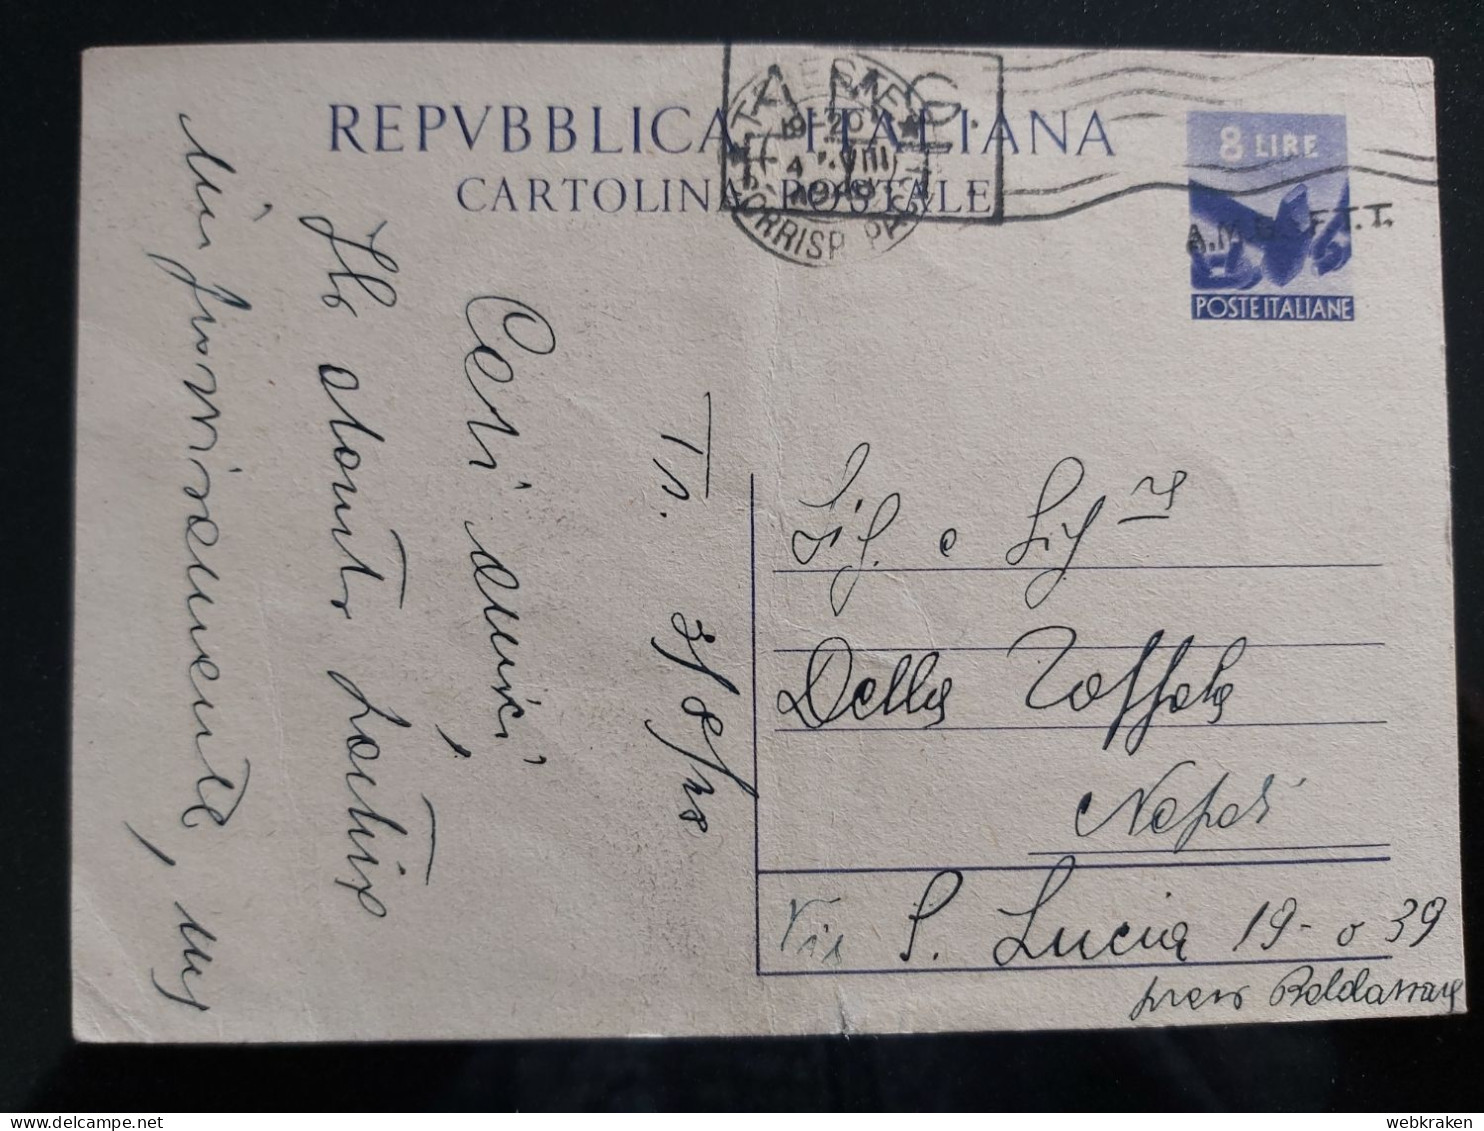 REPVBBLICA ITALIANA
CARTOLINA POSTALE
A.M.G.
F.T.T.
TRIESTE
19-20
4 VIII
CORRISP. PAC
8 LIRE
A.M.G. F.T.T.
POSTE ITALIANE
Ts. 3/8/48
Cari amici,
Ho dovuto partire
improvvisamente,
Sig. e Sig re
Della
Napoli
Via S. Lucia 19- o 39
presso Baldassarre
webkraken